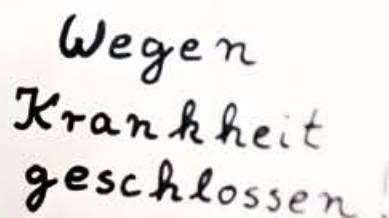 Wegen
Krankheit
geschlossen!